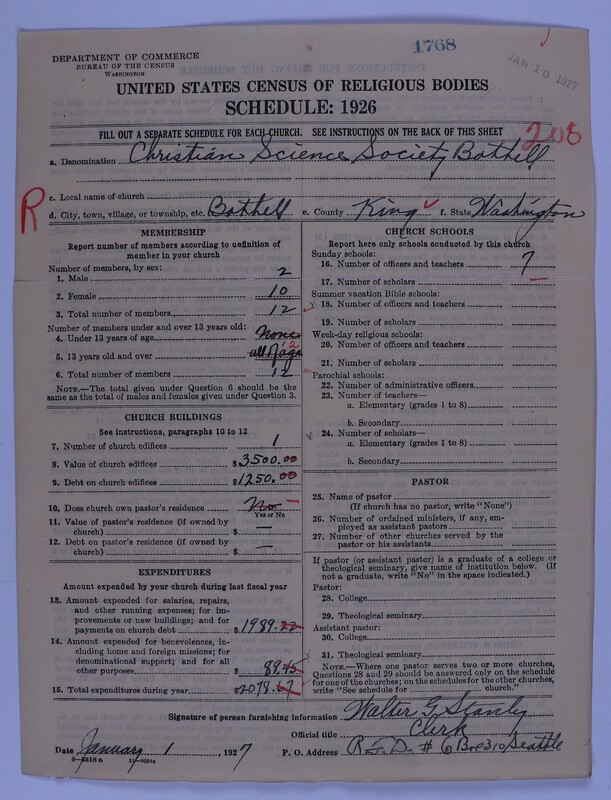 1768
JAN 10 1927
DEPARTMENT OF COMMERCE
BUREAU OF THE CENSUS
WASHINGTON
UNITED STATES CENSUS OF RELIGIOUS BODIES
SCHEDULE: 1926
FILL OUT A SEPARATE SCHEDULE FOR EACH CHURCH. SEE INSTRUCTIONS ON THE BACK OF THIS SHEET
208
a. Denomination Christian Science Society Bothell
R
c. Local name of church
d. City, town, village, or township, etc. Bothell e. County King f. State Washington
MEMBERSHIP
Report number of members according to definition of
member in your church
Number of members, by sex:
1. Male 2
2. Female 10
3. Total number of members 12
Number of members under and over 13 years old:
4. Under 13 years of age None
5. 13 years old and over all of age 12
6. Total number of members 12
NOTE.—The total given under Question 6 should be
the same as the total of males and females given under Question 3.
CHURCH BUILDINGS
See instructions, paragraphs 10 to 12
7. Number of church edifices 1
8. Value of church edifices $3500.00
9. Debt on church edifices $1250.00
10. Does church own pastor's residence No
Yes or No
11. Value of pastor's residence (if owned by
church) $ —
12. Debt on pastor's residence (if owned by
church) $ —
EXPENDITURES
Amount expended by your church during last fiscal year
13. Amount expended for salaries, repairs,
and other running expenses; for im-
provements or new buildings; and for
payments on church debt $1989.22
14. Amount expended for benevolences, in-
cluding home and foreign missions; for
denominational support; and for all
other purposes $ 89.45
15. Total expenditures during year $2078.67
CHURCH SCHOOLS
Report here only schools conducted by this church
Sunday schools:
16. Number of officers and teachers 7
17. Number of scholars —
Summer vacation Bible schools:
18. Number of officers and teachers
19. Number of scholars
Week-day religious schools:
20. Number of officers and teachers
21. Number of scholars
Parochial schools:
22. Number of administrative officers
23. Number of teachers—
a. Elementary (grades 1 to 8)
b. Secondary
24. Number of scholars—
a. Elementary (grades 1 to 8)
b. Secondary
PASTOR
25. Name of pastor
(If church has no pastor, write "None")
26. Number of ordained ministers, if any, em-
ployed as assistant pastors
27. Number of other churches served by the
pastor or his assistants
If pastor (or assistant pastor) is a graduate of a college or
theological seminary, give name of institution below. (If
not a graduate, write "No" in the space indicated.)
Pastor:
28. College
29. Theological seminary
Assistant pastor:
30. College
31. Theological seminary
NOTE.—Where one pastor serves two or more churches,
Questions 28 and 29 should be answered only on the schedule
for one of the churches; on the schedules for the other churches,
write "See schedule for church."
Signature of person furnishing information Walter G. Stanly
Official title Clerk
Date January 1 1927 P. O. Address R.F.D. # 6 Box 310 Seattle